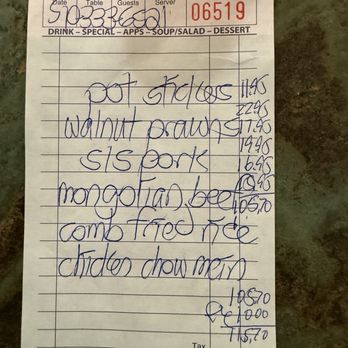 Date Table Guests Server
510-333-6521 06519
DRINK – SPECIAL – APPS – SOUP/SALAD – DESSERT
pot stickers 11.95
22.95
walnut prawns 17.95
19.95
s/s pork 16.95
mongolian beef 105.70
comb fried rice
chicken chow mein
105.70
10.00
115.70
Tax